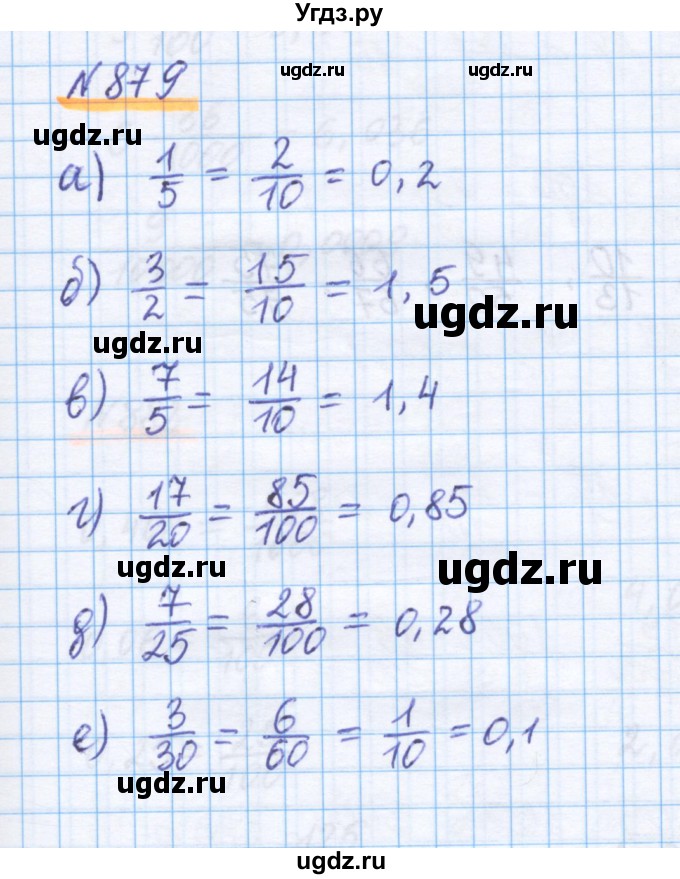 Угдз.ру
№ 879
ugdz.ru ugdz.ru
ugdz.ru
а) 1/5 = 2/10 = 0,2
б) 3/2 = 15/10 = 1,5
ugdz.ru
ugdz.ru
в) 7/5 = 14/10 = 1,4
г) 17/20 = 85/100 = 0,85
ugdz.ru
ugdz.ru
д) 7/25 = 28/100 = 0,28
е) 3/30 = 6/60 = 1/10 = 0,1
ugdz.ru
ugdz.ru